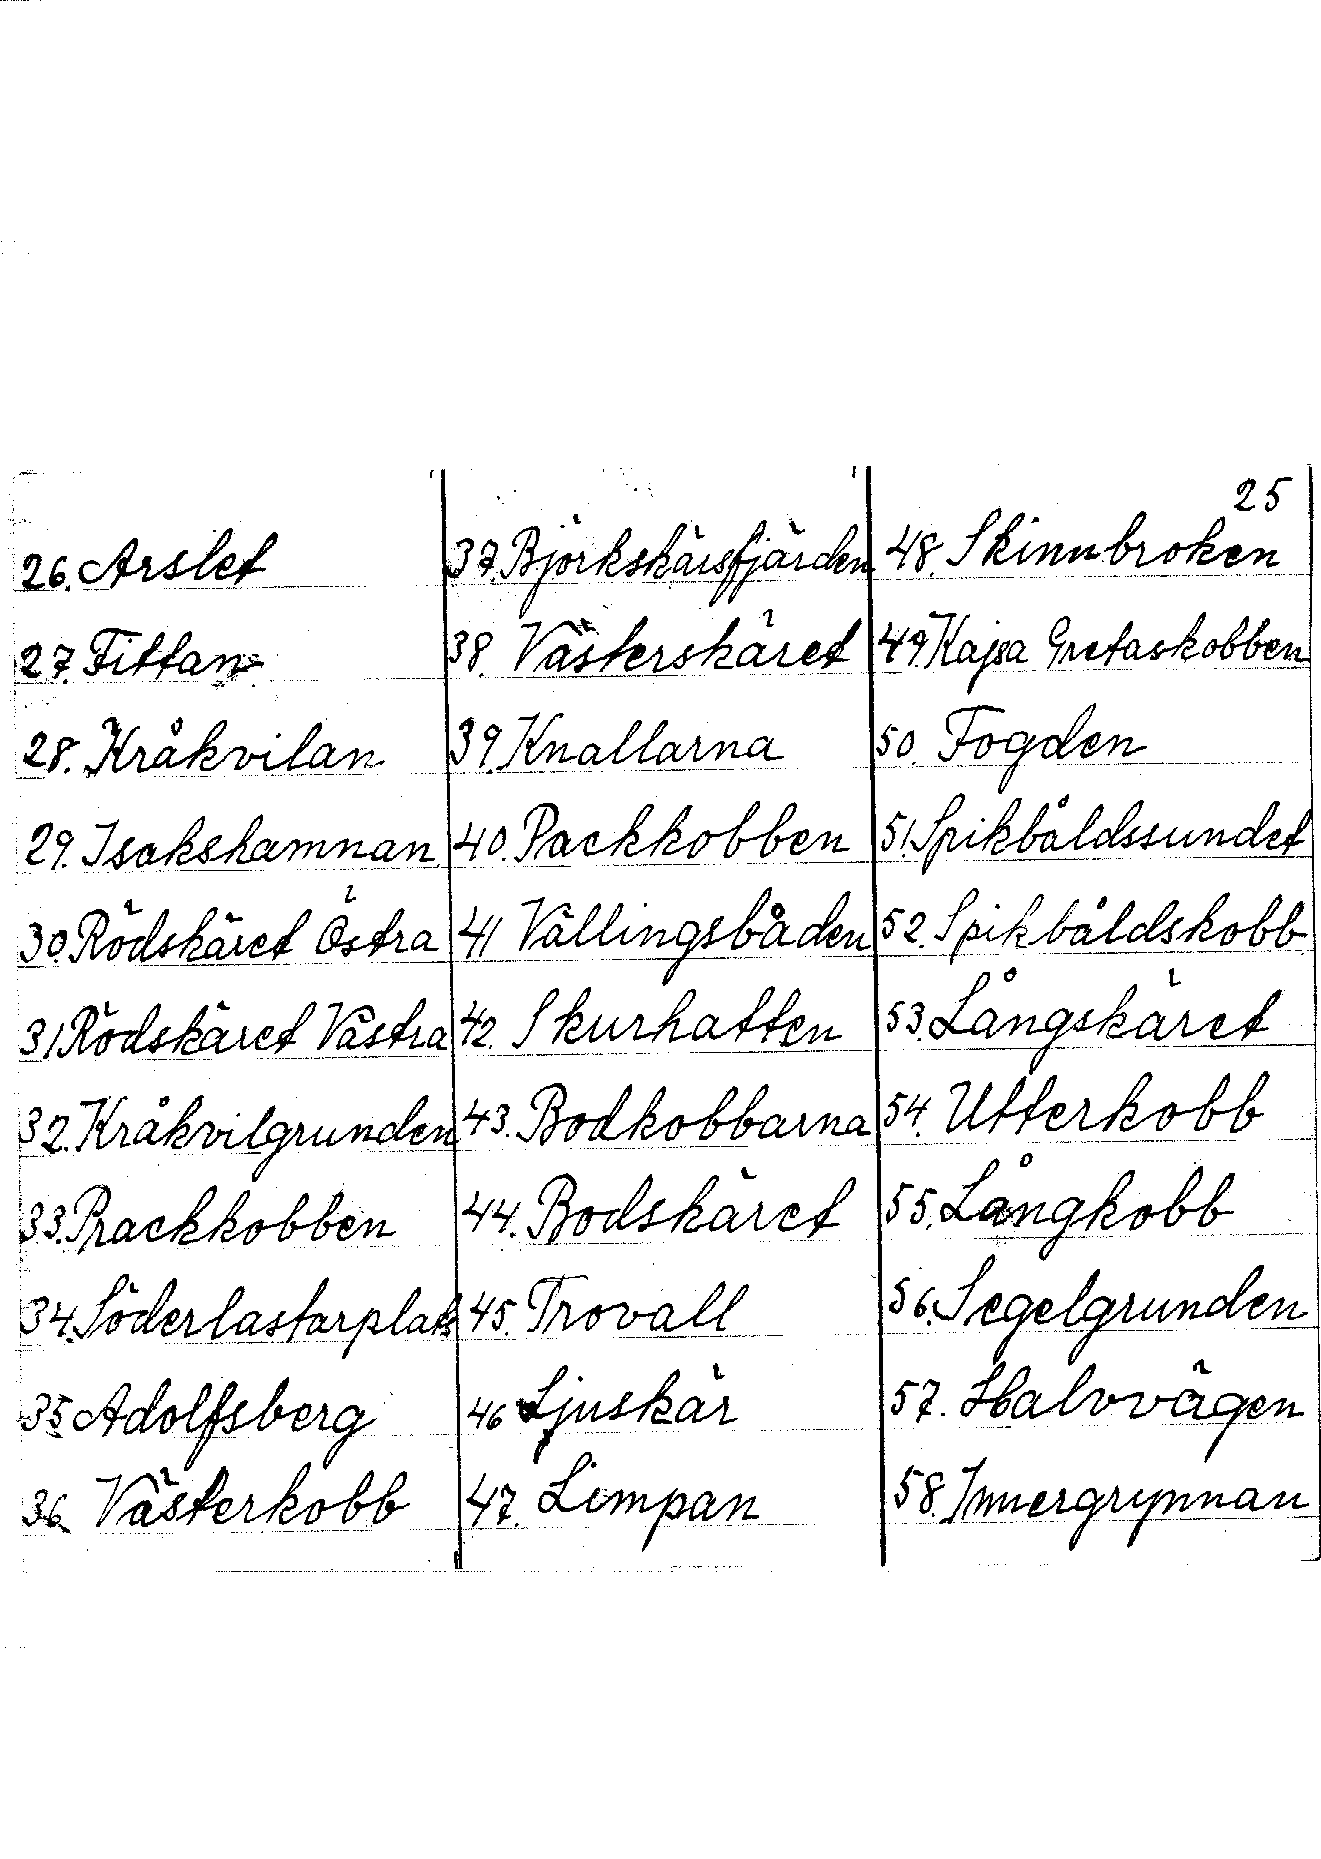 25
26. Arslet
27. Fittan
28. Kråkvilan
29. Isakshamnan
30. Rödskäret Östra
31 Rödskäret Västra
32. Kråkvilgrunden
33. Prackkobben
34. Söderlastarplats
35 Adolfsberg
36 Västerkobb
37. Björkskärsfjärden
38. Västerskäret
39. Knallarna
40. Packkobben
41 Vällingsbåden
42. Skurhatten
43. Bodkobbarna
44. Bodskäret
45. Trovall
46 Ljuskär
47. Limpan
48. Skinnbroken
49. Kajsa Gretaskobben
50. Fogden
51. Spikbåldssundet
52. Spikbåldskobb
53. Långskäret
54. Utterkobb
55. Långkobb
56. Segelgrunden
57. Halvvägen
58. Innergrynnan